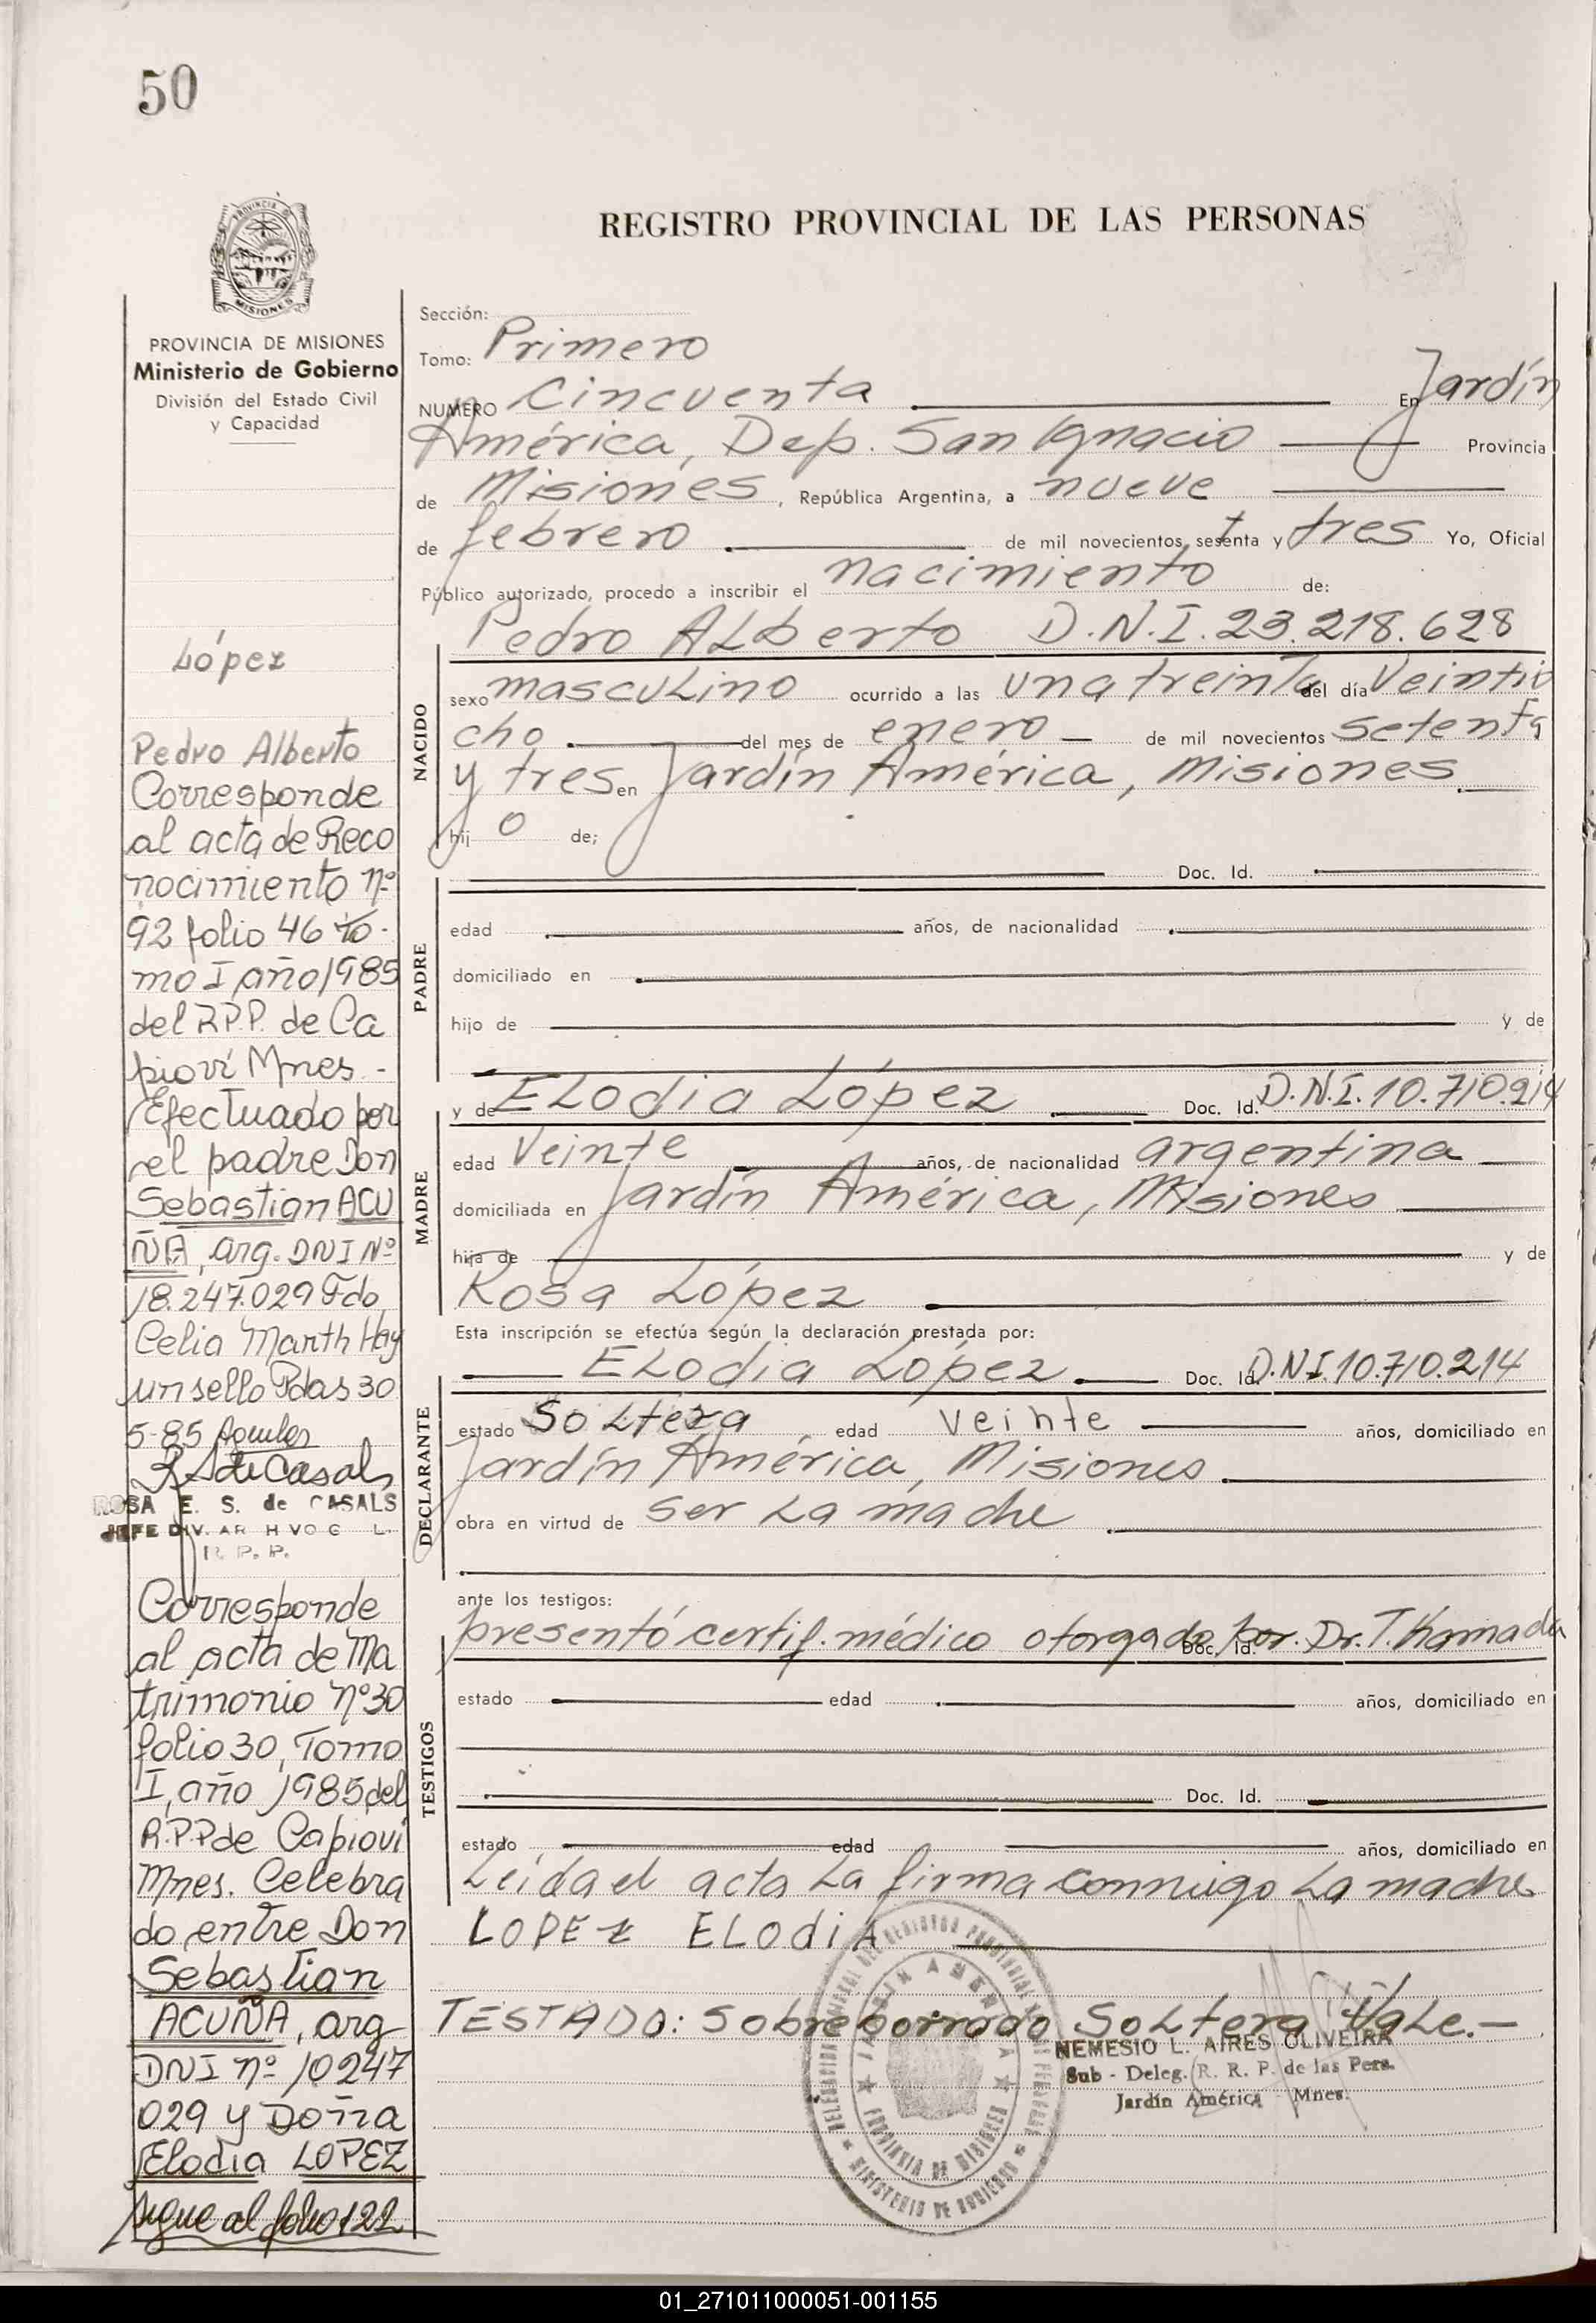 50
PROVINCIA DE
MISIONES
REGISTRO PROVINCIAL DE LAS PERSONAS
PROVINCIA DE MISIONES
Ministerio de Gobierno
División del Estado Civil
y Capacidad
López
Pedro Alberto
Corresponde
al acta de Reco
nocimiento nº
92 folio 46 to-
mo I año 1985
del R.P.P. de Ca
pioví Mnes.-
Efectuado por
el padre Don
Sebastian ACU
ÑA, arg. DNI Nº
18.247.029 Fdo
Celia Marth Hay
un sello Pdas 30
5-85
ROSA E. S. de CASALS
JEFE DIV. AR H VO G L.
R. P. P.
Corresponde
al acta de Ma
trimonio nº 30
folio 30, Tomo
I, año 1985 del
R.P.P de Capioví
Mnes. Celebra
do entre Don
Sebastian
ACUÑA, arg
DNI nº 10247
029 y Doña
Elodia LOPEZ
sigue al folio 122
Sección:
Tomo: Primero
NUMERO Cincuenta En Jardín
América, Dep. San Ignacio Provincia
de Misiones, República Argentina, a nueve
de febrero de mil novecientos setenta y tres Yo, Oficial
Público autorizado, procedo a inscribir el nacimiento de:
Pedro ALberto D.N.I. 23.218.628
NACIDO
sexo mascuLino ocurrido a las una treinta del día Veintio
cho del mes de enero de mil novecientos setenta
y tres en Jardín América, Misiones
hijo de;
Doc. Id.
PADRE
edad años, de nacionalidad
domiciliado en
hijo de y de
MADRE
y de ELodia López Doc. Id. D.N.I. 10.710.214
edad Veinte años, de nacionalidad argentina
domiciliada en Jardín América, Misiones
hija de y de
Rosa López
Esta inscripción se efectúa según la declaración prestada por:
DECLARANTE
ELodia López Doc. Id. D.N.I 10.710.214
estado SoLtera edad veinte años, domiciliado en
Jardín América, Misiones
obra en virtud de ser La madre
ante los testigos:
TESTIGOS
presentó certif. médico otorgado por Dr. T. Kamada Doc. Id.
estado edad años, domiciliado en
Doc. Id.
estado edad años, domiciliado en
Leída el acta La firma conmigo La madre
LOPEZ ELOdiA
TESTADO: Sobreborrado SoLtera VaLe.-
NEMESIO L. AIRES OLIVEIRA
Sub - Deleg. R. R. P. de las Pers.
Jardín América Mnes.
JARDIN AMERICA
PROVINCIA DE MISIONES
MINISTERIO DE GOBIERNO
01_271011000051-001155